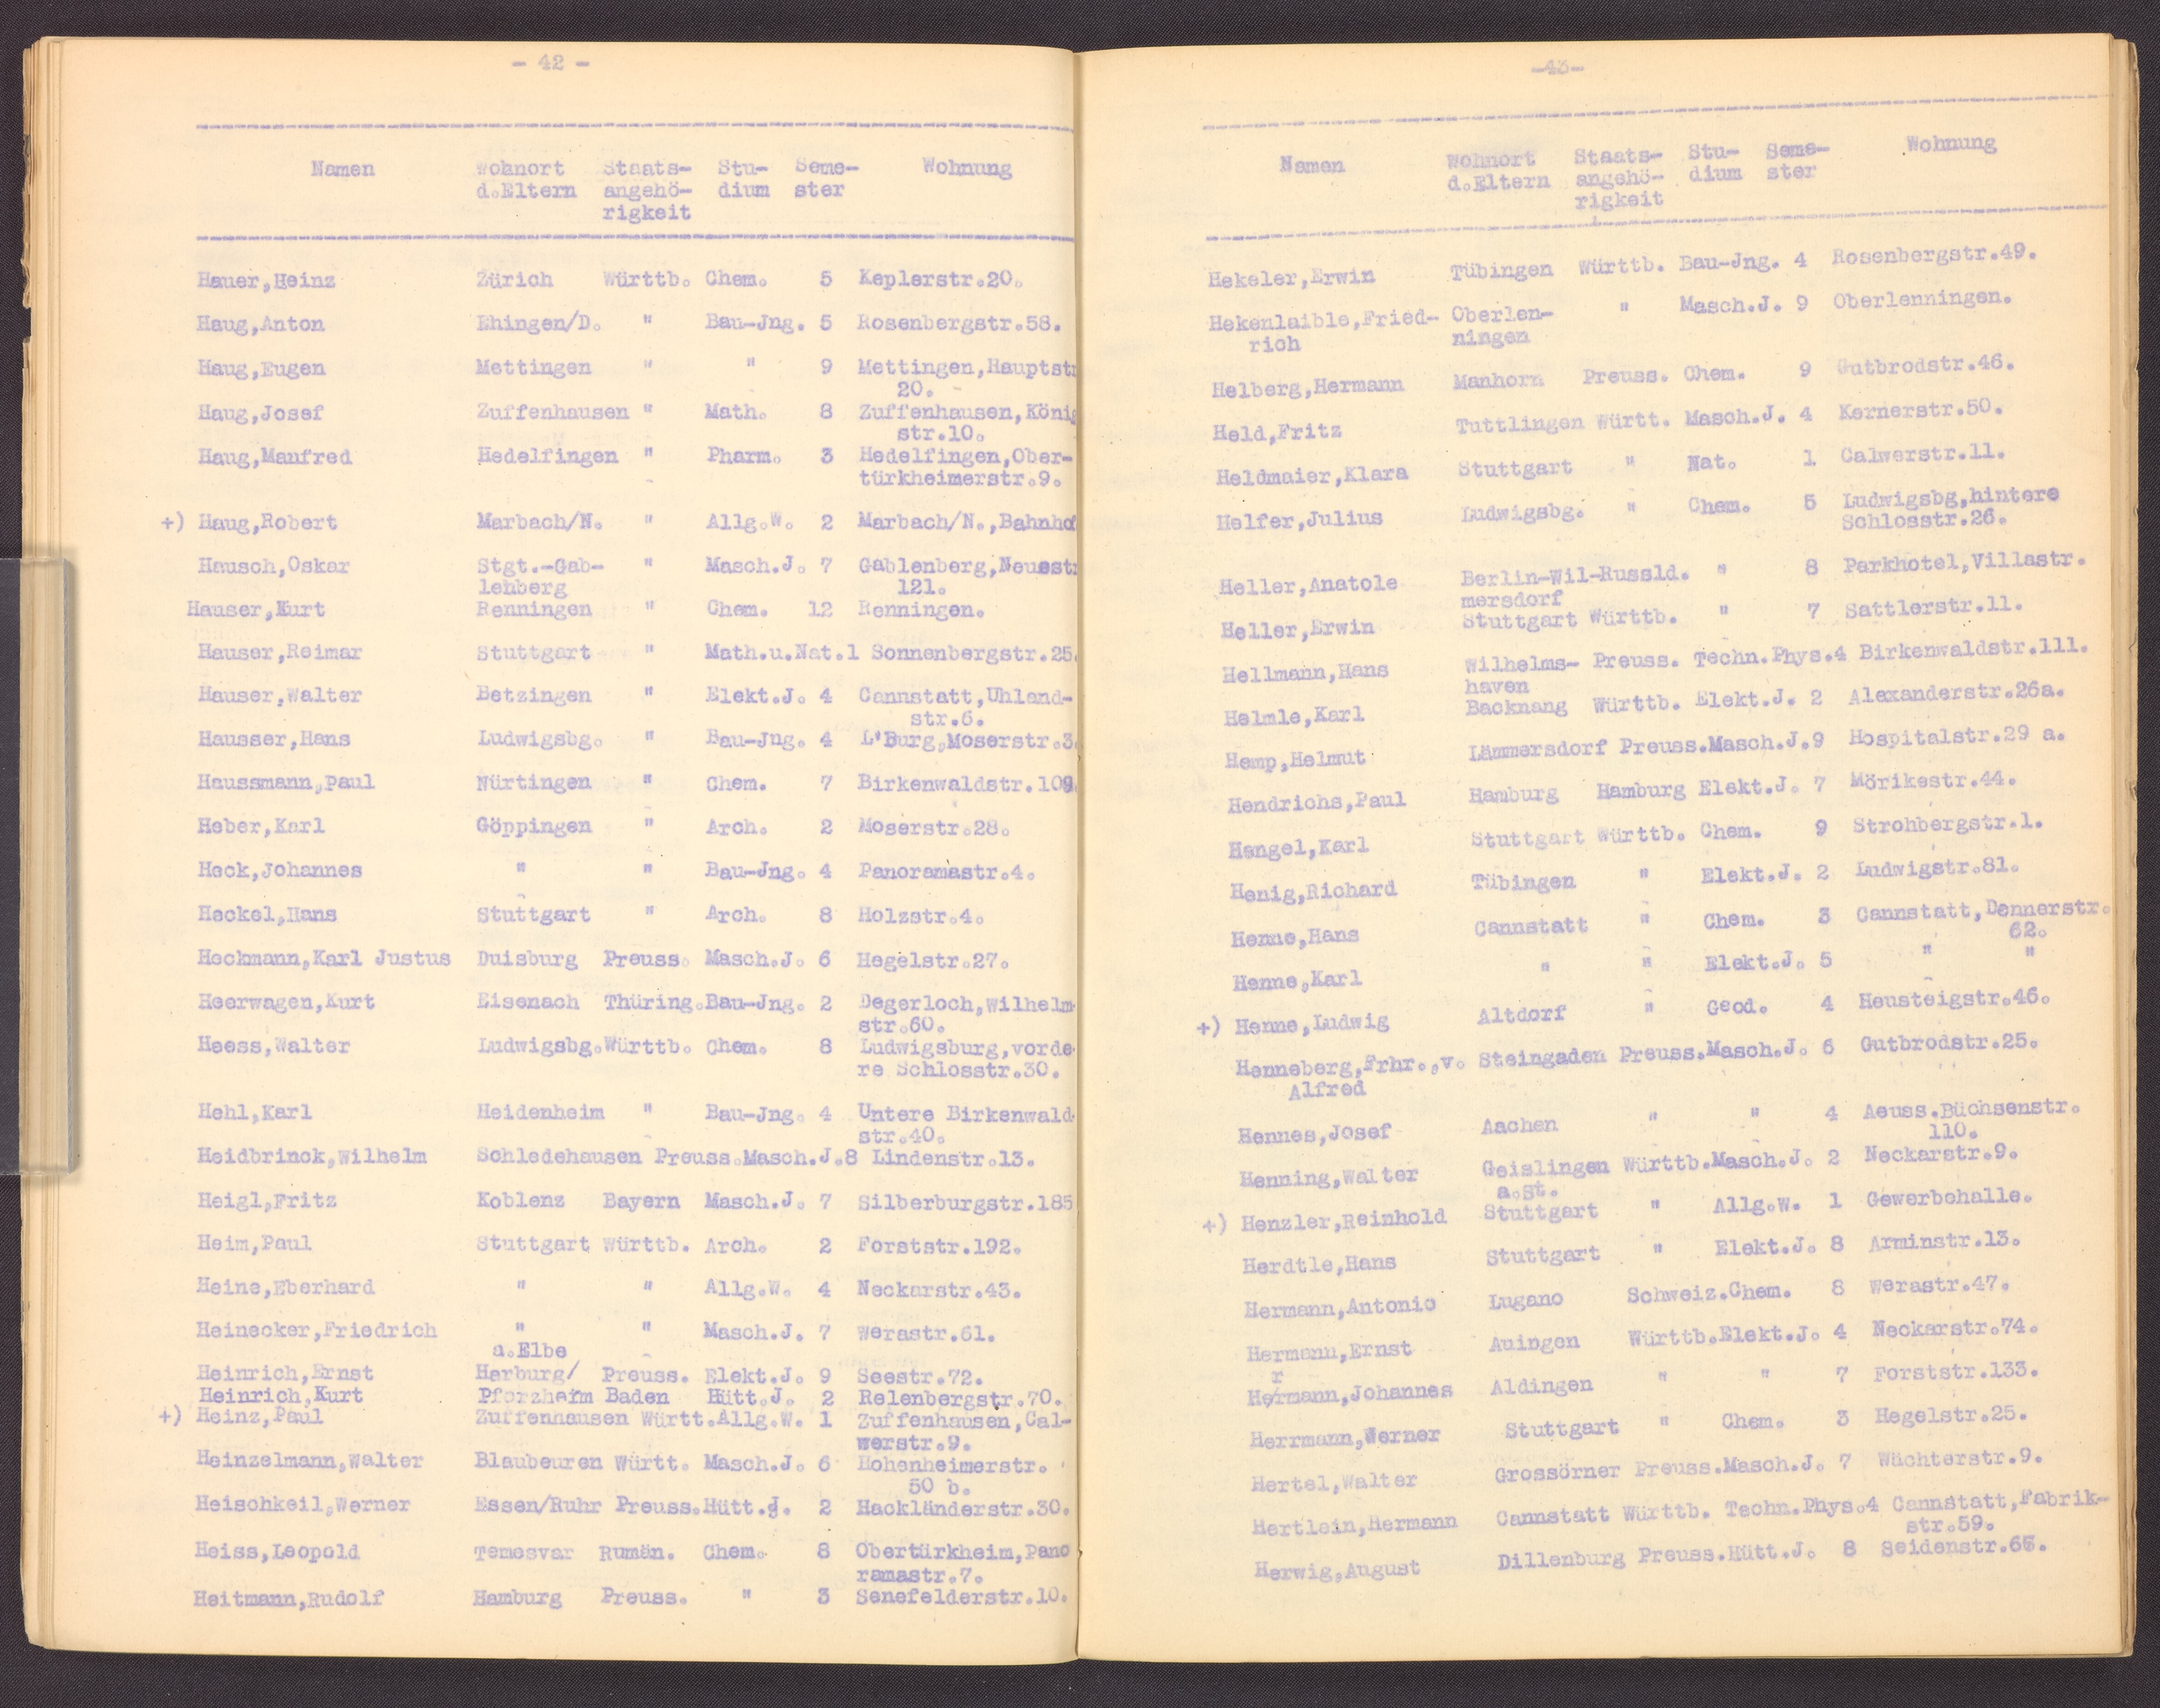 - 42 -
Namen Wohnort Staats- Stu- Seme- Wohnung
d.Eltern angehö- dium ster
rigkeit
Hauer,Heinz Zürich Württb. Chem. 5 Keplerstr.20.
Haug,Anton Ehingen/D. " Bau-Jng. 5 Rosenbergstr.58.
Haug,Eugen Mettingen " " 9 Mettingen,Hauptstr
20.
Haug,Josef Zuffenhausen " Math. 8 Zuffenhausen,König
str.10.
Haug,Manfred Hedelfingen " Pharm. 3 Hedelfingen,Ober-
türkheimerstr.9.
+) Haug,Robert Marbach/N. " Allg.W. 2 Marbach/N.,Bahnhof
Hausch,Oskar Stgt.-Gab- " Masch.J. 7 Gablenberg,Neuestr
lenberg 121.
Hauser,Kurt Renningen " Chem. 12 Renningen.
Hauser,Reimar Stuttgart " Math.u.Nat.1 Sonnenbergstr.25.
Hauser,Walter Betzingen " Elekt.J. 4 Cannstatt,Uhland-
str.6.
Hausser,Hans Ludwigsbg. " Bau-Jng. 4 L'Burg,Moserstr.3.
Haussmann,Paul Nürtingen " Chem. 7 Birkenwaldstr.109.
Heber,Karl Göppingen " Arch. 2 Moserstr.28.
Heck,Johannes " " Bau-Jng. 4 Panoramastr.4.
Heckel,Hans Stuttgart " Arch. 8 Holzstr.4.
Heckmann,Karl Justus Duisburg Preuss. Masch.J. 6 Hegelstr.27.
Heerwagen,Kurt Eisenach Thüring.Bau-Jng. 2 Degerloch,Wilhelm-
str.60.
Heess,Walter Ludwigsbg.Württb. Chem. 8 Ludwigsburg,vorde-
re Schlosstr.30.
Hehl,Karl Heidenheim " Bau-Jng. 4 Untere Birkenwald-
str.40.
Heidbrinck,Wilhelm Schledehausen Preuss.Masch.J.8 Lindenstr.13.
Heigl,Fritz Koblenz Bayern Masch.J. 7 Silberburgstr.185
Heim,Paul Stuttgart Württb. Arch. 2 Forststr.192.
Heine,Eberhard " " Allg.W. 4 Neckarstr.43.
Heinecker,Friedrich " " Masch.J. 7 Werastr.61.
a.Elbe
Heinrich,Ernst Harburg/ Preuss. Elekt.J. 9 Seestr.72.
Heinrich,Kurt Pforzheim Baden Hütt.J. 2 Relenbergstr.70.
+) Heinz,Paul Zuffenhausen Württ.Allg.W. 1 Zuffenhausen,Cal-
werstr.9.
Heinzelmann,Walter Blaubeuren Württ. Masch.J. 6 Hohenheimerstr.
50 b.
Heischkeil,Werner Essen/Ruhr Preuss.Hütt.J. 2 Hackländerstr.30.
Heiss,Leopold Temesvar Rumän. Chem. 8 Obertürkheim,Pano
ramastr.7.
Heitmann,Rudolf Hamburg Preuss. " 3 Senefelderstr.10.
-43-
Namen Wohnort Staats- Stu- Seme- Wohnung
d.Eltern angehö- dium ster
rigkeit
Hekeler,Erwin Tübingen Württb. Bau-Jng. 4 Rosenbergstr.49.
Hekenlaible,Fried- Oberlen- " Masch.J. 9 Oberlenningen.
rich ningen
Helberg,Hermann Manhorn Preuss. Chem. 9 Gutbrodstr.46.
Held,Fritz Tuttlingen Württ. Masch.J. 4 Kernerstr.50.
Heldmaier,Klara Stuttgart " Nat. 1 Calwerstr.11.
Helfer,Julius Ludwigsbg. " Chem. 5 Ludwigsbg,hintere
Schlosstr.26.
Heller,Anatole Berlin-Wil-Russld. " 8 Parkhotel,Villastr.
mersdorf
Heller,Erwin Stuttgart Württb. " 7 Sattlerstr.11.
Hellmann,Hans Wilhelms- Preuss. Techn.Phys.4 Birkenwaldstr.111.
haven
Helmle,Karl Backnang Württb. Elekt.J. 2 Alexanderstr.26a.
Hemp,Helmut Lämmersdorf Preuss.Masch.J.9 Hospitalstr.29 a.
Hendrichs,Paul Hamburg Hamburg Elekt.J. 7 Mörikestr.44.
Hengel,Karl Stuttgart Württb. Chem. 9 Strohbergstr.1.
Henig,Richard Tübingen " Elekt.J. 2 Ludwigstr.81.
Henne,Hans Cannstatt " Chem. 3 Cannstatt,Dennerstr.
62.
Henne,Karl " " Elekt.J. 5 " "
+) Henne,Ludwig Altdorf " Geod. 4 Heusteigstr.46.
Henneberg,Frhr.,v. Steingaden Preuss.Masch.J. 6 Gutbrodstr.25.
Alfred
Hennes,Josef Aachen " " 4 Aeuss.Büchsenstr.
110.
Henning,Walter Geislingen Württb.Masch.J. 2 Neckarstr.9.
a.St.
+) Henzler,Reinhold Stuttgart " Allg.W. 1 Gewerbehalle.
Herdtle,Hans Stuttgart " Elekt.J. 8 Arminstr.13.
Hermann,Antonio Lugano Schweiz.Chem. 8 Werastr.47.
Hermann,Ernst Auingen Württb.Elekt.J. 4 Neckarstr.74.
r
Hermann,Johannes Aldingen " " 7 Forststr.133.
Herrmann,Werner Stuttgart " Chem. 3 Hegelstr.25.
Hertel,Walter Grossörner Preuss.Masch.J. 7 Wächterstr.9.
Hertlein,Hermann Cannstatt Württb. Techn.Phys.4 Cannstatt,Fabrik-
str.59.
Herwig,August Dillenburg Preuss.Hütt.J. 8 Seidenstr.